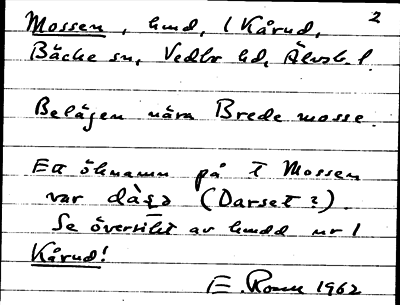 2
Mossen, hmd, 1 Kårud,
Bäcke sn, Vedbo hd, Älvsb. l.
Belägen nära Brede mosse.
Ett öknamn på t Mossen
var (Darset?).
Se översikt av hmdd nr 1
Kårud!
E. Rosen 1962